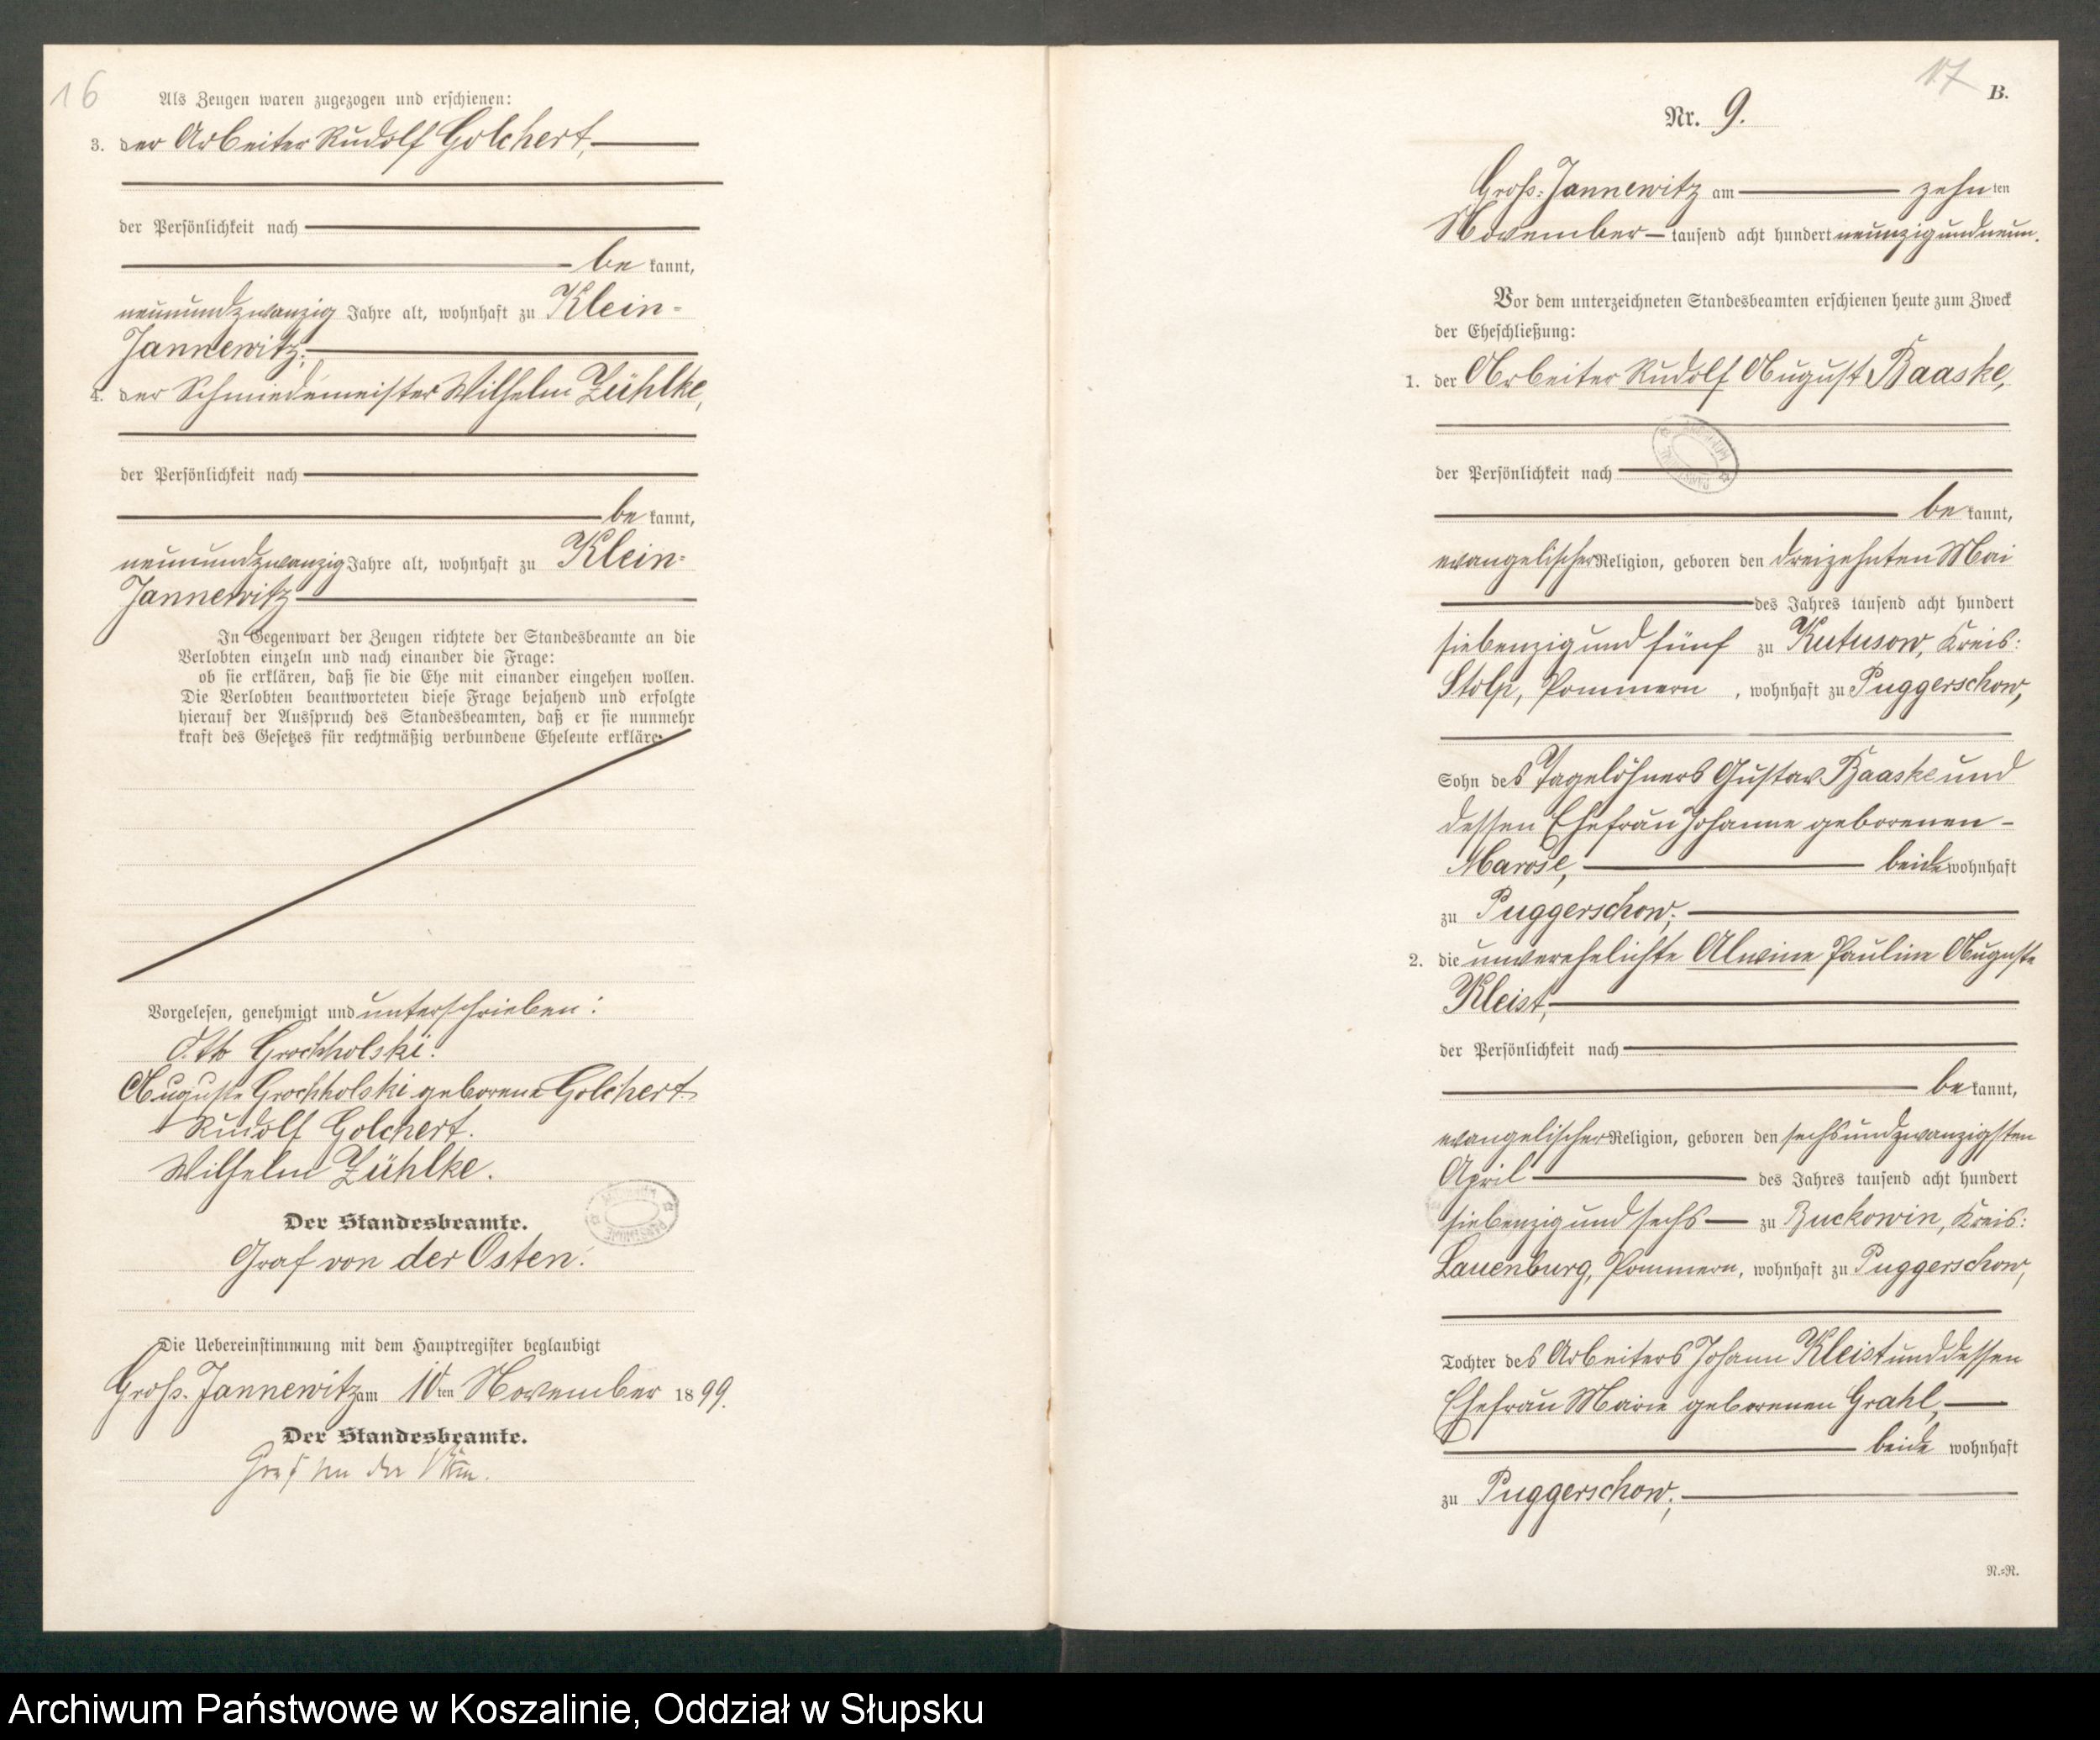 16
Als Zeugen waren zugezogen und erschienen:
3. der Arbeiter Rudolf Golchert,
der Persönlichkeit nach
be kannt,
neunundzwanzig Jahre alt, wohnhaft zu Klein-
Jannewitz;
4. der Schmiedemeister Wilhelm Zühlke,
der Persönlichkeit nach
be kannt,
neunundzwanzig Jahre alt, wohnhaft zu Klein-
Jannewitz
In Gegenwart der Zeugen richtete der Standesbeamte an die
Verlobten einzeln und nach einander die Frage:
ob sie erklären, daß sie die Ehe mit einander eingehen wollen.
Die Verlobten beantworteten diese Frage bejahend und erfolgte
hierauf der Ausspruch des Standesbeamten, daß er sie nunmehr
kraft des Gesetzes für rechtmäßig verbundene Eheleute erkläre.
Vorgelesen, genehmigt und unterschrieben:
Otto Grochholski.
Auguste Grochholski geborene Golchert.
Rudolf Golchert.
Wilhelm Zühlke.
Der Standesbeamte.
Graf von der Osten.
Die Uebereinstimmung mit dem Hauptregister beglaubigt
Groß-Jannewitz am 10ten November 1899.
Der Standesbeamte.
Graf von der Osten.
17
B.
Nr. 9.
Groß-Jannewitz am zehnten
November tausend acht hundert neunzig und neun.
Vor dem unterzeichneten Standesbeamten erschienen heute zum Zweck
der Eheschließung:
1. der Arbeiter Rudolf August Baaske,
der Persönlichkeit nach
be kannt,
evangelischer Religion, geboren den dreizehnten Mai
des Jahres tausend acht hundert
siebenzig und fünf zu Kutusow, Kreis:
Stolp, Pommern, wohnhaft zu Puggerschow,
Sohn des Tagelöhners Gustav Baaske und
dessen Ehefrau Johanne geborenen
Marose, beide wohnhaft
zu Puggerschow;
2. die unverehelichte Alwine Pauline Auguste
Kleist,
der Persönlichkeit nach
be kannt,
evangelischer Religion, geboren den sechsundzwanzigsten
April des Jahres tausend acht hundert
siebenzig und sechs zu Buckowin, Kreis:
Lauenburg, Pommern, wohnhaft zu Puggerschow,
Tochter des Arbeiters Johann Kleist und dessen
Ehefrau Marie geborenen Grahl,
beide wohnhaft
zu Puggerschow;
N.=N.
Archiwum Państwowe w Koszalinie, Oddział w Słupsku